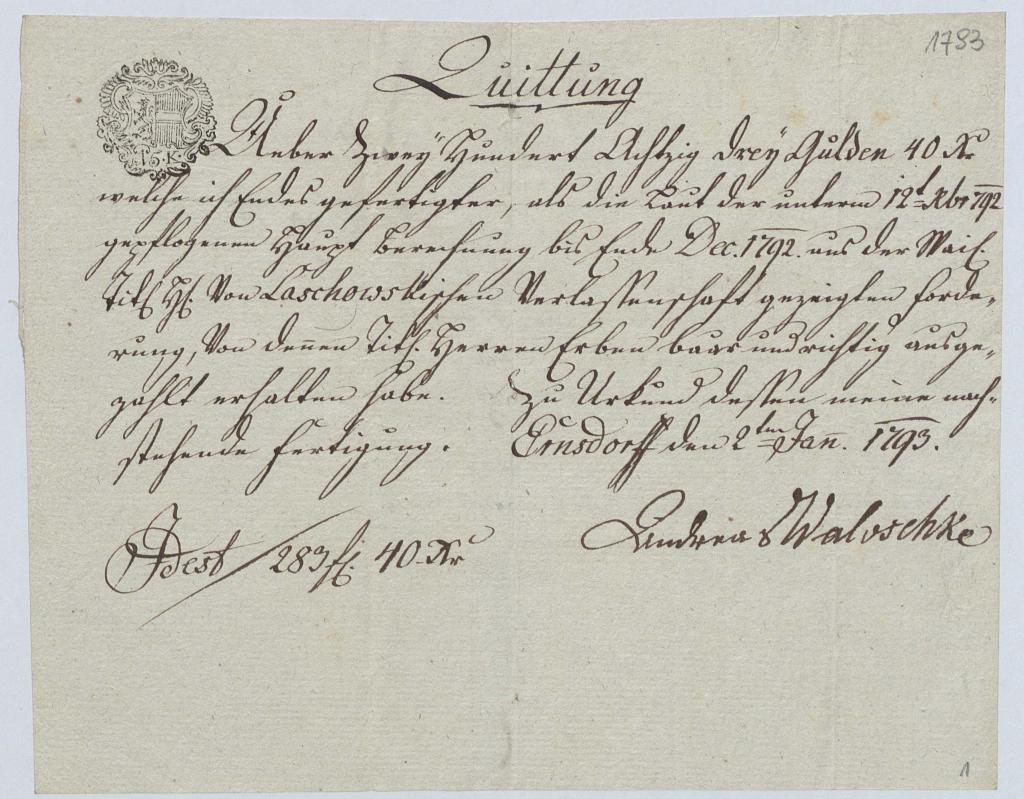 1793
Quittung
15 K
Ueber Zwey Hundert Achtzig drey Gulden 40 Xr
welche ich Endes gefertigter, als die Laut der unterm 12t Xbr 792
gepflogenen Haupt Berechnung bis Ende Dec. 1792. aus der
Titl H. von Laschowskischen Verlassenschaft gezeigten forde„
rung, von denen Titl. Herren Erben baar und richtig ausge„
zahlt erhalten habe. Zu Urkund dessen meine nach„
stehende Fertigung. Ernsdorff den 2ten Jann. 1793.
Idest / 283 f. 40 Xr
Andreas Waloschke
1